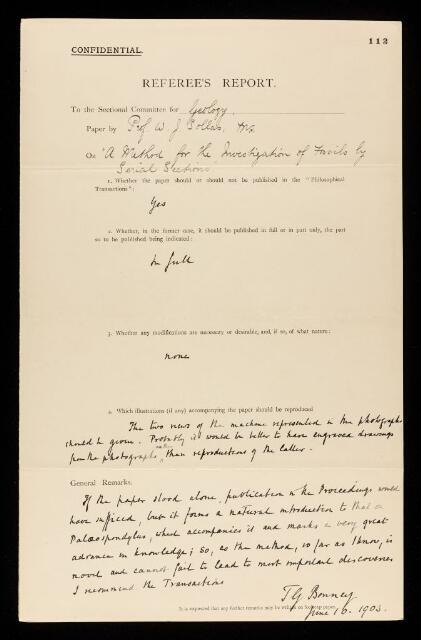 112
CONFIDENTIAL.
REFEREE'S REPORT.
To the Sectional Committee for Geology.
Paper by Prof. W. J. Sollas, FRS
On "A Method for the Investigation of Fossils by
Serial Sections"
1. Whether the paper should or should not be published in the "Philosophical
Transactions":
Yes
2. Whether, in the former case, it should be published in full or in part only, the part
so to be published being indicated:
In full
3. Whether any modifications are necessary or desirable, and, if so, of what nature:
none
4. Which illustrations (if any) accompanying the paper should be reproduced
The two views of the machine represented in the photographs
should be given. Probably it would be better to have engraved drawings
from the photographs rather than reproductions of the latter.
General Remarks.
If the paper stood alone, publication in the Proceedings would
have sufficed, but it forms a natural introduction to that on
Palæospondylus, which accompanies it and marks a very great
advance in knowledge; so, as the method, so far as I know, is
novel and cannot fail to lead to most important discoveries
I recommend the Transactions
T. G. Bonney
It is requested that any further remarks may be written on foolscap paper.
June 16. 1903.